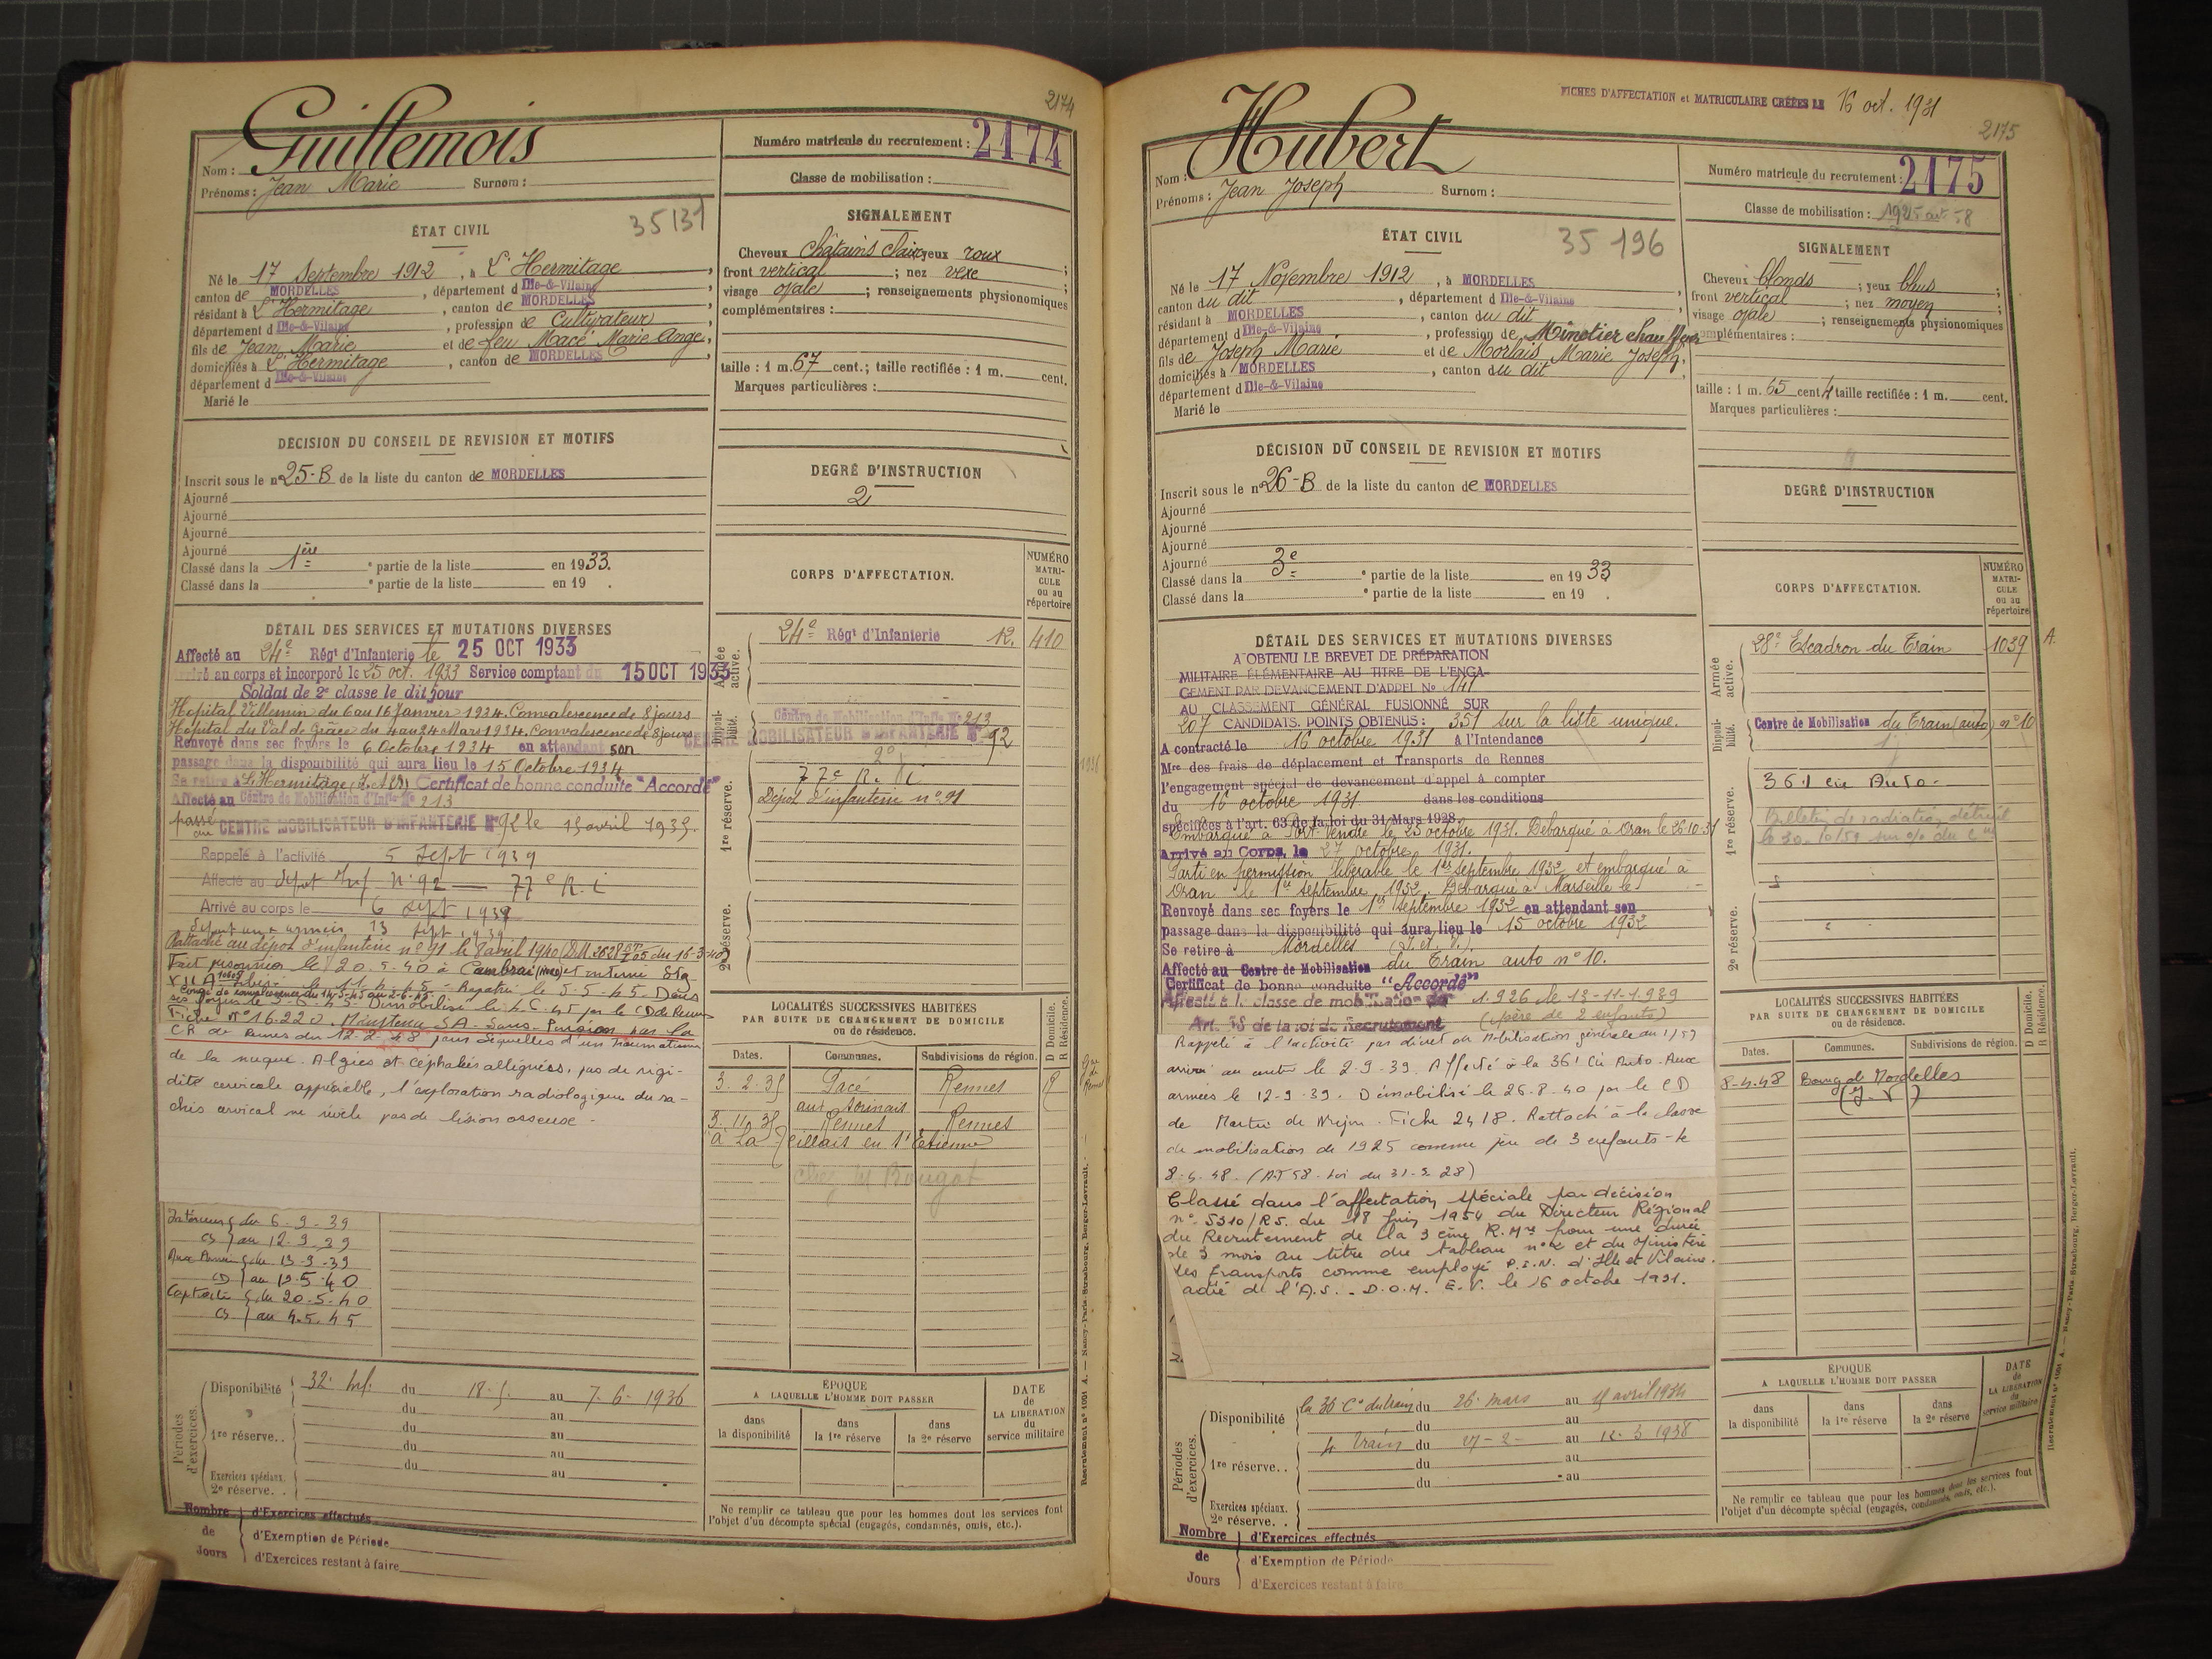 2174
Guillemois
Nom :
Prénoms : Jean Marie Surnom :
Numéro matricule du recrutement : 2174
Classe de mobilisation :
35131
ÉTAT CIVIL
Né le 17 Septembre 1912, à L'Hermitage,
canton de MORDELLES, département d Ille-&-Vilaine,
résidant à L'Hermitage, canton de MORDELLES,
département d Ille-&-Vilaine, profession de Cultivateur
fils de Jean Marie et de feu Macé Marie Ange,
domiciliés à L'Hermitage, canton de MORDELLES,
département d Ille-&-Vilaine
Marié le
SIGNALEMENT
Cheveux châtains clairs yeux roux ;
front vertical ; nez vexe ;
visage ovale ; renseignements physionomiques
complémentaires :
taille : 1 m. 67 cent.; taille rectifiée : 1 m. cent.
Marques particulières :
DÉCISION DU CONSEIL DE REVISION ET MOTIFS
Inscrit sous le n° 25-B de la liste du canton de MORDELLES
Ajourné
Ajourné
Ajourné
Ajourné
Classé dans la 1ère partie de la liste en 1933.
Classé dans la e partie de la liste en 19 .
DEGRÉ D'INSTRUCTION
2
CORPS D'AFFECTATION.
NUMÉRO MATRI- CULE ou au répertoire
Armée active.
24e Régt d'Infanterie 12. 410
Disponi- bilité.
Centre de Mobilisation d'Infie No 213
CENTRE MOBILISATEUR D'INFANTERIE No 92
1re réserve.
77e R. i
Dépôt d'infanterie n° 91
2e réserve.
DÉTAIL DES SERVICES ET MUTATIONS DIVERSES
Affecté au 24e Régt d'Infanterie le 25 OCT 1933
Arrivé au corps et incorporé le 25 oct. 1933 Service comptant du 15 OCT 1933
Soldat de 2e classe le dit jour
Hôpital Villemin du 6 au 16 Janvier 1934. Convalescence de 8 jours
Hôpital du Val de Grâce du 4 au 24 Mars 1934. Convalescence de 8 jours
Renvoyé dans ses foyers le 6 Octobre 1934 en attendant son
passage dans la disponibilité qui aura lieu le 15 Octobre 1934
Se retire à L'Hermitage, I. & V. Certificat de bonne conduite "Accordé"
Affecté au Centre de Mobilisation d'Infie No 213
passé au CENTRE MOBILISATEUR D'INFANTERIE No 92 le 15 avril 1935.
Rappelé à l'activité 5 Sept 1939
Affecté au dépôt Inf n° 92 — 77e R. i
Arrivé au corps le 6 sept 1939
départ aux armées 13 sept 1939
Rattaché au dépôt d'infanterie n° 91 le 8 avril 1940
Fait prisonnier le 20.5.40 à Cambrai (Nord) et interné Stg
Rapatrié le 5-5-45
Fiche N° 16.220. Maintenu S.A. Sans-Pension par la
C R de Rennes du 12-2-48 pour séquelles d'un traumatisme
de la nuque. Algies et céphalées alléguées, pas de rigi-
dité cervicale appréciable, l'exploration radiologique du ra-
chis cervical ne révèle pas de lésion osseuse.
Intérieur du 6-9-39
CS au 12.9.39
Aux Armées du 13-9-39
CD au 19.5.40
Captivité du 20-5-40
CS au 4.5.45
LOCALITÉS SUCCESSIVES HABITÉES
PAR SUITE DE CHANGEMENT DE DOMICILE
ou de résidence.
D Domicile. R Résidence.
Dates. Communes. Subdivisions de région.
3. 2. 35 Pacé Rennes R
aux Sorinais
3. 11. 35 Rennes Rennes
à La eillais en St Etienne
chez Mr Bougot
Périodes d'exercices.
Disponibilité 32e Inf. du 18-5- au 7-6-1936
du au
1re réserve. . du au
du au
du au
Exercices spéciaux.
2e réserve. .
ÉPOQUE
A LAQUELLE L'HOMME DOIT PASSER
dans la disponibilité
dans la 1re réserve
dans la 2e réserve
DATE de LA LIBÉRATION du service militaire
Ne remplir ce tableau que pour les hommes dont les services font
l'objet d'un décompte spécial (engagés, condamnés, omis, etc.).
Nombre de Jours
d'Exercices effectués
d'Exemption de Période
d'Exercices restant à faire
Recrutement n° 1061 A. — Nancy-Paris-Strasbourg, Berger-Levrault.
FICHES D'AFFECTATION et MATRICULAIRE CRÉÉES LE 16 oct. 1931
2175
Hubert
Nom :
Prénoms : Jean Joseph Surnom :
Numéro matricule du recrutement : 2175
Classe de mobilisation : 1925 art 58
35 196
ÉTAT CIVIL
Né le 17 Novembre 1912, à MORDELLES
canton du dit, département d Ille-&-Vilaine
résidant à MORDELLES, canton du dit
département d Ille-&-Vilaine, profession de Minotier chauffeur
fils de Joseph Marie et de Morlais, Marie Joseph,
domiciliés à MORDELLES, canton du dit
département d Ille-&-Vilaine
Marié le
SIGNALEMENT
Cheveux blonds ; yeux bleus ;
front vertical ; nez moyen ;
visage ovale ; renseignements physionomiques
complémentaires :
taille : 1 m. 65 cent 4 taille rectifiée : 1 m. cent.
Marques particulières :
DÉCISION DU CONSEIL DE REVISION ET MOTIFS
Inscrit sous le n° 26-B de la liste du canton de MORDELLES
Ajourné
Ajourné
Ajourné
Ajourné
Classé dans la 3e partie de la liste en 1933
Classé dans la e partie de la liste en 19 .
DEGRÉ D'INSTRUCTION
CORPS D'AFFECTATION.
NUMÉRO MATRI- CULE ou au répertoire
Armée active.
28e Escadron du Train 1039 A.
Disponi- bilité.
Centre de Mobilisation du Train (auto) n° 10
1re réserve.
361 Cie Auto.
Bulletin de radiation détruit
2e réserve.
DÉTAIL DES SERVICES ET MUTATIONS DIVERSES
A OBTENU LE BREVET DE PRÉPARATION
MILITAIRE ÉLÉMENTAIRE AU TITRE DE L'ENGA-
GEMENT PAR DEVANCEMENT D'APPEL No 141
AU CLASSEMENT GÉNÉRAL FUSIONNÉ SUR
207 CANDIDATS. POINTS OBTENUS : 351 sur la liste unique.
A contracté le 16 octobre 1931 à l'Intendance
Mre des frais de déplacement et Transports de Rennes
l'engagement spécial de devancement d'appel à compter
du 16 octobre 1931 dans les conditions
spécifiées à l'art. 63 de la loi du 31 Mars 1928
Embarqué à Port Vendre le 25 octobre 1931. Débarqué à Oran le 26-10-31
Arrivé au Corps, le 27 octobre 1931.
Parti en permission libérable le 1er septembre 1932 et embarqué à
Oran le 1er septembre 1932. Débarqué à Marseille le
Renvoyé dans ses foyers le 1er Septembre 1932 en attendant son
passage dans la disponibilité qui aura lieu le 15 octobre 1932
Se retire à Mordelles (I. et V.)
Affecté au Centre de Mobilisation du Train auto n° 10.
Certificat de bonne conduite "Accordé"
Affecté à la classe de mobilisation de 1.926 le 13-11-1.939
Art. 58 de la loi de Recrutement (père de 2 enfants)
Rappelé à l'activité par décret de Mobilisation générale du 1/59
arrivé au centre le 2-9-39. Affecté à la 361 Cie Auto. Aux
armées le 12-9-39. Démobilisé le 26-8-40 par le CD
Fiche 2418. Rattaché à la classe
de mobilisation de 1925 comme père de 3 enfants - le
8-4-48. (Art 58. Loi du 31-3 28)
Classé dans l'affectation spéciale par décision
n° 5310/RS. du 18 Juin 1954 du Directeur Régional
du Recrutement de la 3 ème R. Mre pour une durée
de 3 mois au titre du tableau n° 2 et du Ministère
des transports comme employé P.I.N. d'Ille et Vilaine.
le 16 octobre 1931.
LOCALITÉS SUCCESSIVES HABITÉES
PAR SUITE DE CHANGEMENT DE DOMICILE
ou de résidence.
D Domicile. R Résidence.
Dates. Communes. Subdivisions de région.
8-4-48 Bourg de Mordelles
(I. V)
Périodes d'exercices.
Disponibilité du 26 mars au 15 avril 1934
du au
4 Train du 27-2- au 12-3 1938
1re réserve. . du au
du au
Exercices spéciaux.
2e réserve. .
ÉPOQUE
A LAQUELLE L'HOMME DOIT PASSER
dans la disponibilité
dans la 1re réserve
dans la 2e réserve
DATE de LA LIBÉRATION du service militaire
Ne remplir ce tableau que pour les hommes dont les services font
l'objet d'un décompte spécial (engagés, condamnés, omis, etc.).
Nombre de Jours
d'Exercices effectués
d'Exemption de Période
d'Exercices restant à faire
Recrutement n° 1061 A. — Nancy-Paris-Strasbourg, Berger-Levrault.